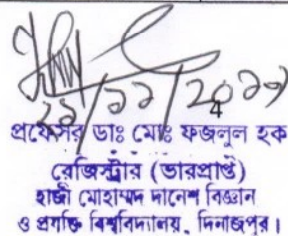 ২১/১১/২০১৭
4
প্রফেসর ডাঃ মোঃ ফজলুল হক
রেজিস্ট্রার (ভারপ্রাপ্ত)
হাজী মোহাম্মদ দানেশ বিজ্ঞান
ও প্রযুক্তি বিশ্ববিদ্যালয়, দিনাজপুর।